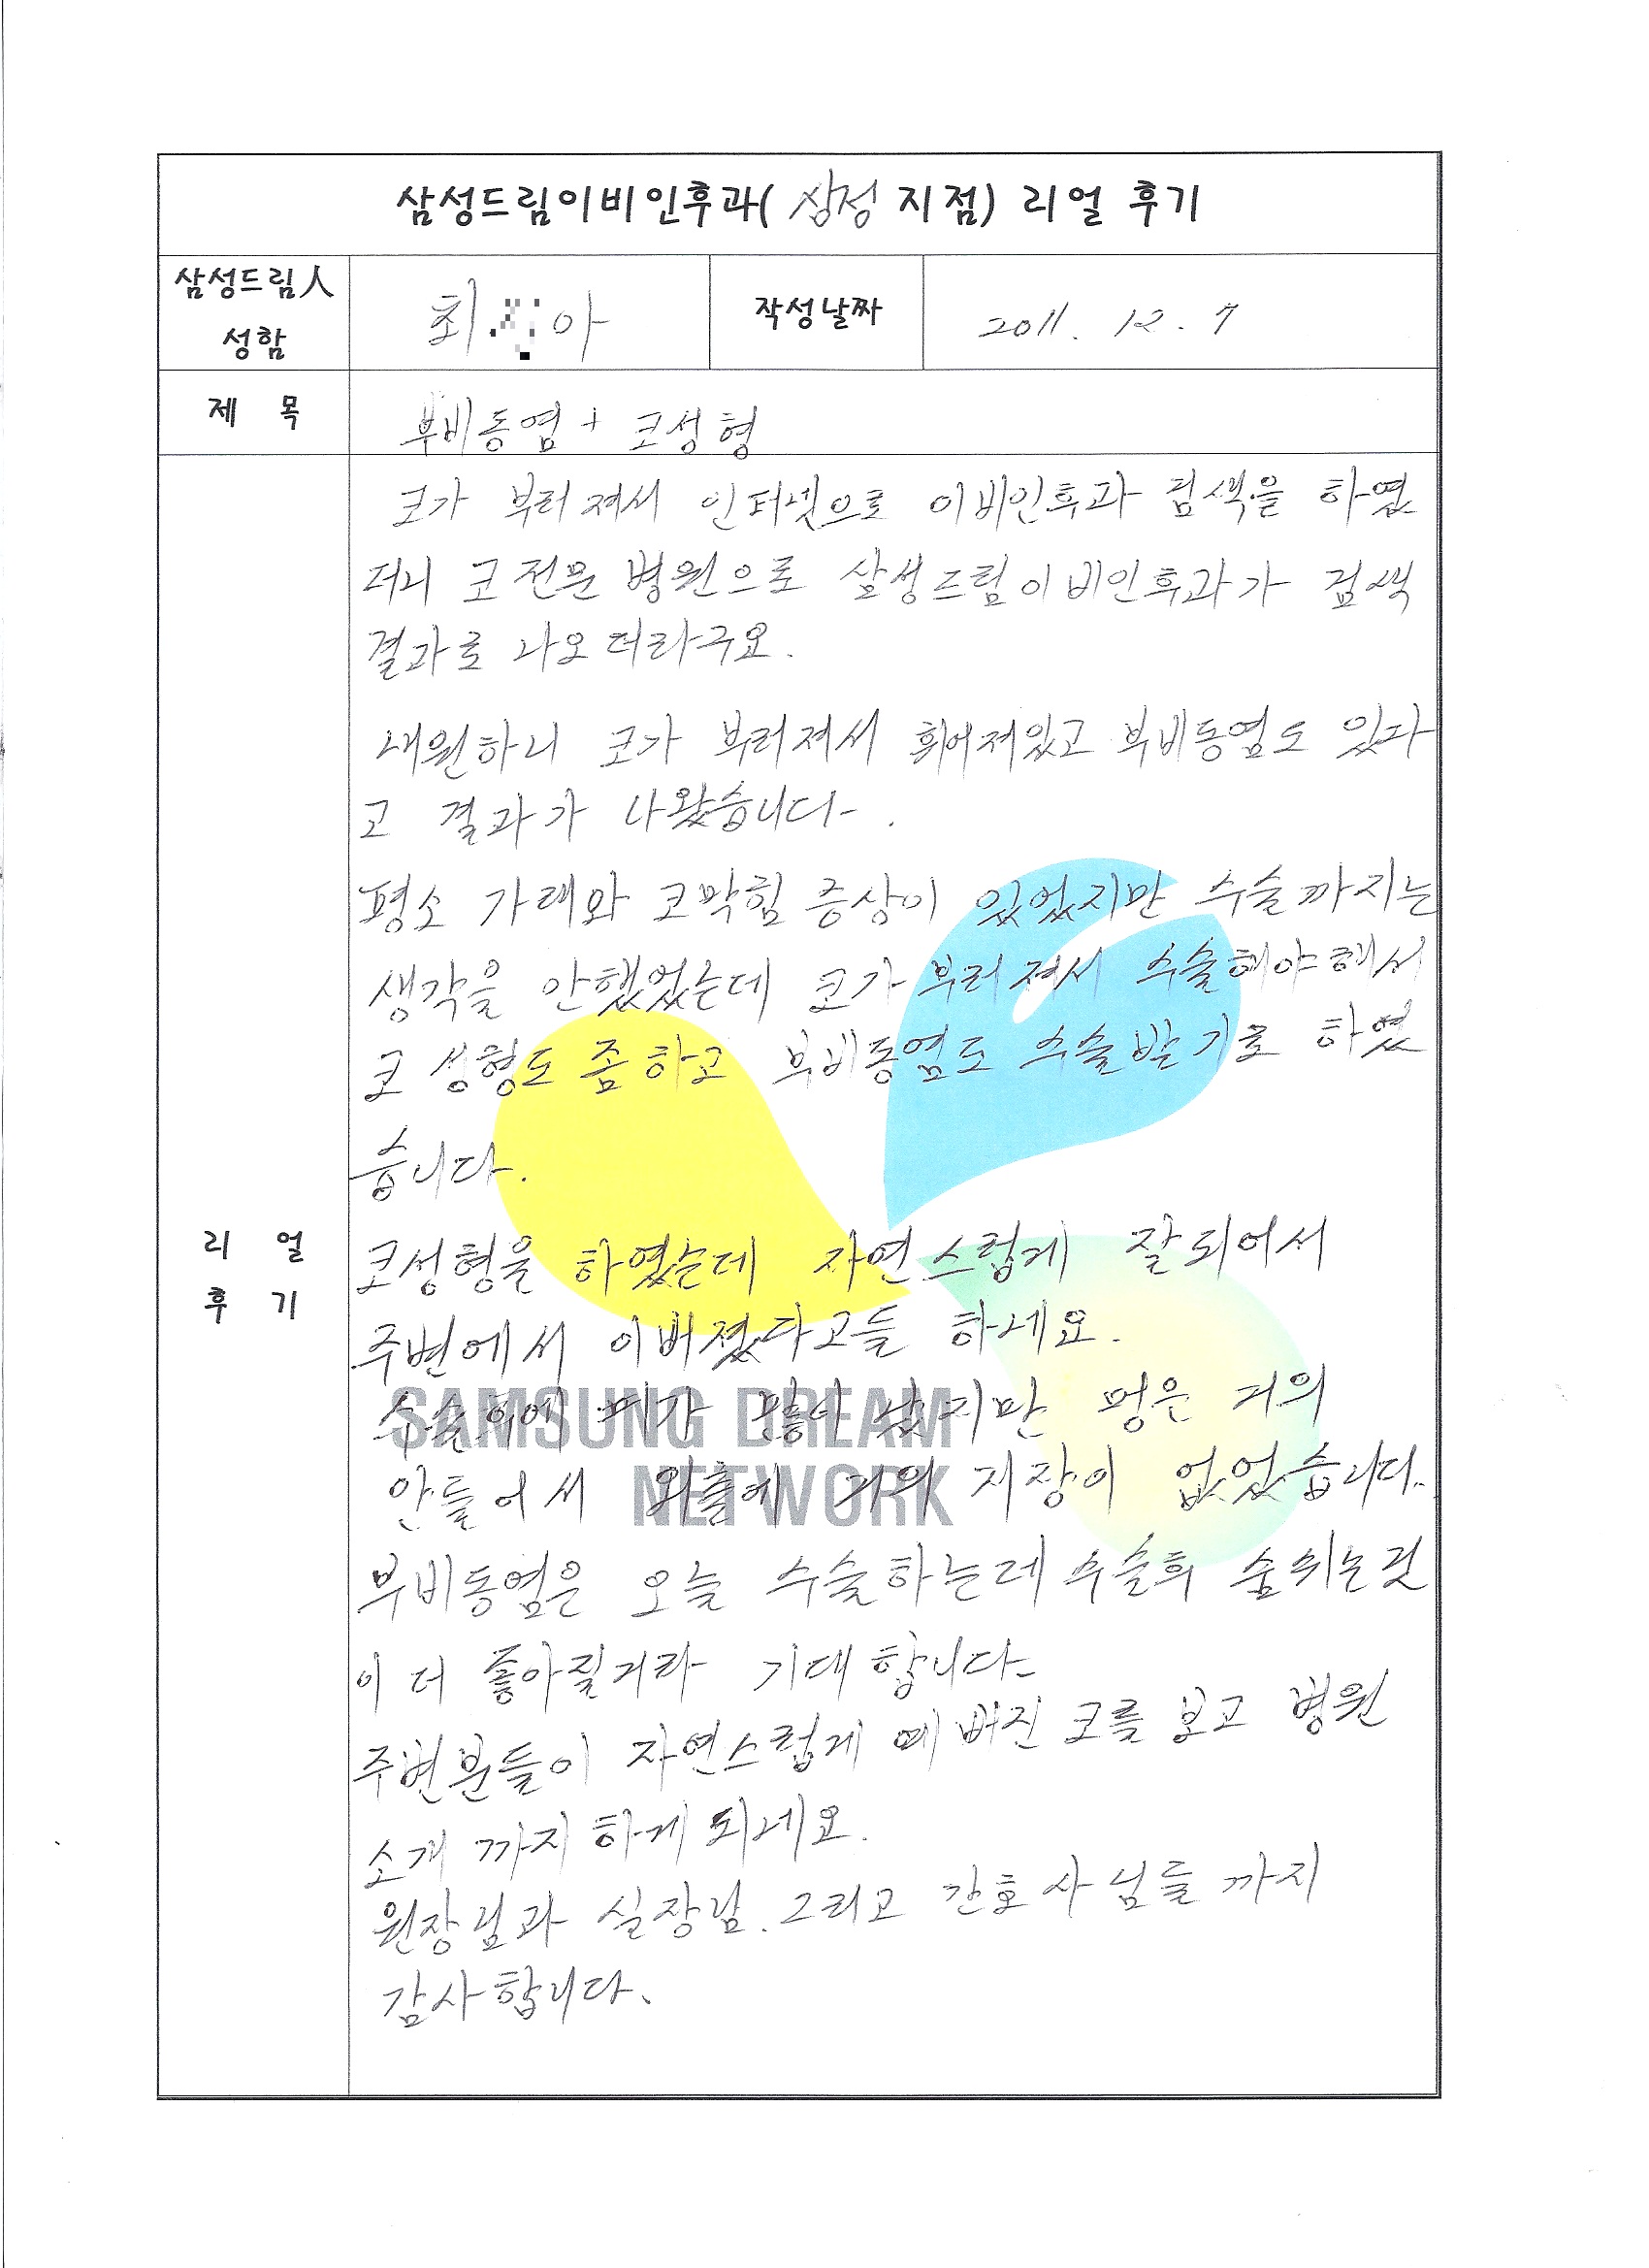 삼성드림이비인후과( 삼성 지점) 리얼 후기
삼성드림人 성함
최 아
작성날짜
2011. 12. 7
제 목
부비동염 + 코성형
리 얼 후 기
코가 부러져서 인터넷으로 이비인후과 검색을 하였
더니 코전문 병원으로 삼성드림이비인후과가 검색
결과로 나오더라구요.
내원하니 코가 부러져서 휘어져있고 부비동염도 있다
고 결과가 나왔습니다.
평소 가래와 코막힘 증상이 있었지만 수술까지는
생각을 안했었는데 코가 부러져서 수술해야해서
코 성형도 좀 하고 부비동염도 수술받기로 하였
습니다.
코성형을 하였는데 자연스럽게 잘되어서
주변에서 이뻐졌다고들 하네요.
SAMSUNG DREAM
NETWORK
수술후에 피가 많이 났지만 멍은 거의
안들어서 외출에 거의 지장이 없었습니다..
부비동염은 오늘 수술하는데 수술후 숨쉬는것
이 더 좋아질거라 기대합니다.
주변분들이 자연스럽게 예뻐진 코를 보고 병원
소개 까지 하게 되네요.
원장님과 실장님. 그리고 간호사님들 까지
감사합니다.